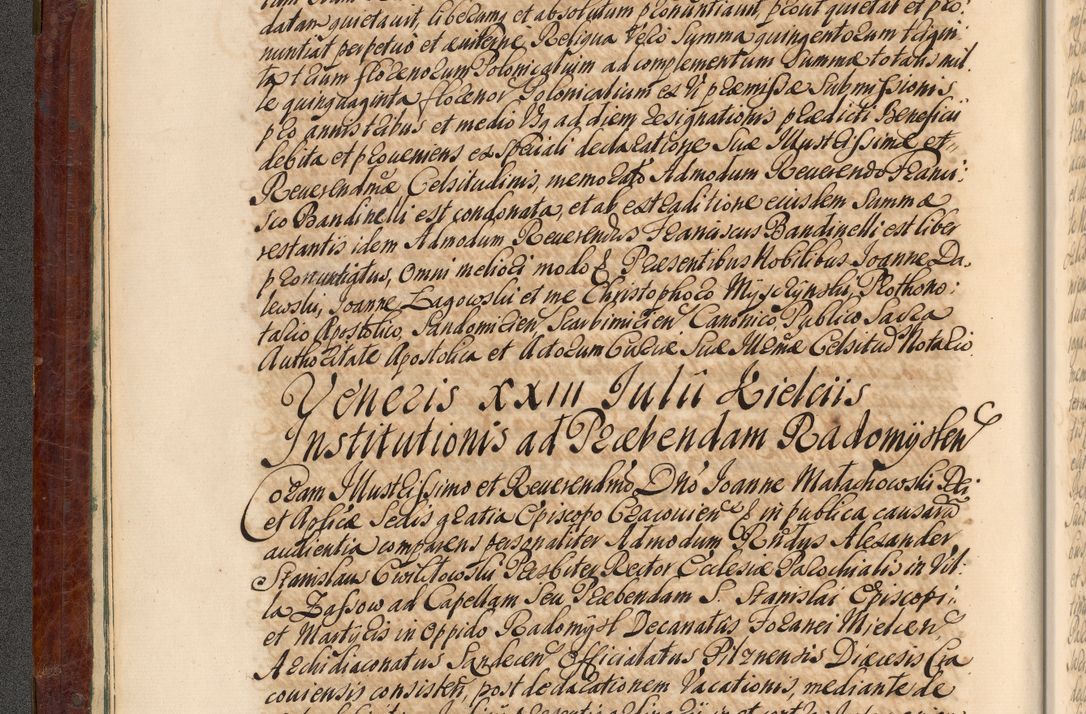 datam quietavit, liberavit et absolutum pronuntiavit prout quietat et pro:
nuntiat perpetuo et æviterne Reliqua Vero Summa quingentorum trigin
ta trium florenorum Polonicalium ad complementum Summæ totalis mil
le quinquaginta florenor Polonicalium ex Vi præmissæ Submissionis
pro annis tribus et medio Vsq ad diem resignationis prædicti Beneficii
debita et proveniens ex speciali declaratione Suæ Illustrissimæ et
Reverendmæ Celsitudinis, memorato Admodum Reverendo Franci:
sco Bandinelli est condonata, et ab extraditione eiusdem Summæ
restantis idem Admodum Reverendus Franciscus Bandinelli est liber
pronuntiatus, Omni meliori modo & Præsentibus Nobilibus Joanne Da:
lewski, Joanne Łagowski et me Christophoro Myszczynski, Prothono:
tario Apostolico, Sandomirien Scarbimirien Canonico, Publico Sacra
Authoritate Apostolica et Actorum Curiæ Suæ Illmæ Celsitud Notario
Veneris XXIII Julii Kielciis
Institutionis ad Præbendam Radomyslen
Coram Illustrissimo et Reverendmo Dno Joanne Małachowski Dei
et Aplicæ Sedis gratia Episcopo Cracovien & in publica causarum
audientia comparens personaliter Admodum Rndus Alexander
Stanislaus Presbiter Rector Ecclesiæ Parochialis in Vil:
la Zassow ad Capellam Seu Præbendam S. Stanislai Episcopi
et Martyris in Oppido Radomysl Decanatus Foranei Mielcen
Archidiaconatus Sandecen Officialatus Pilznensis Diæcesis Cra
coviensis consisten, post declarationem Vacationis, mediante de